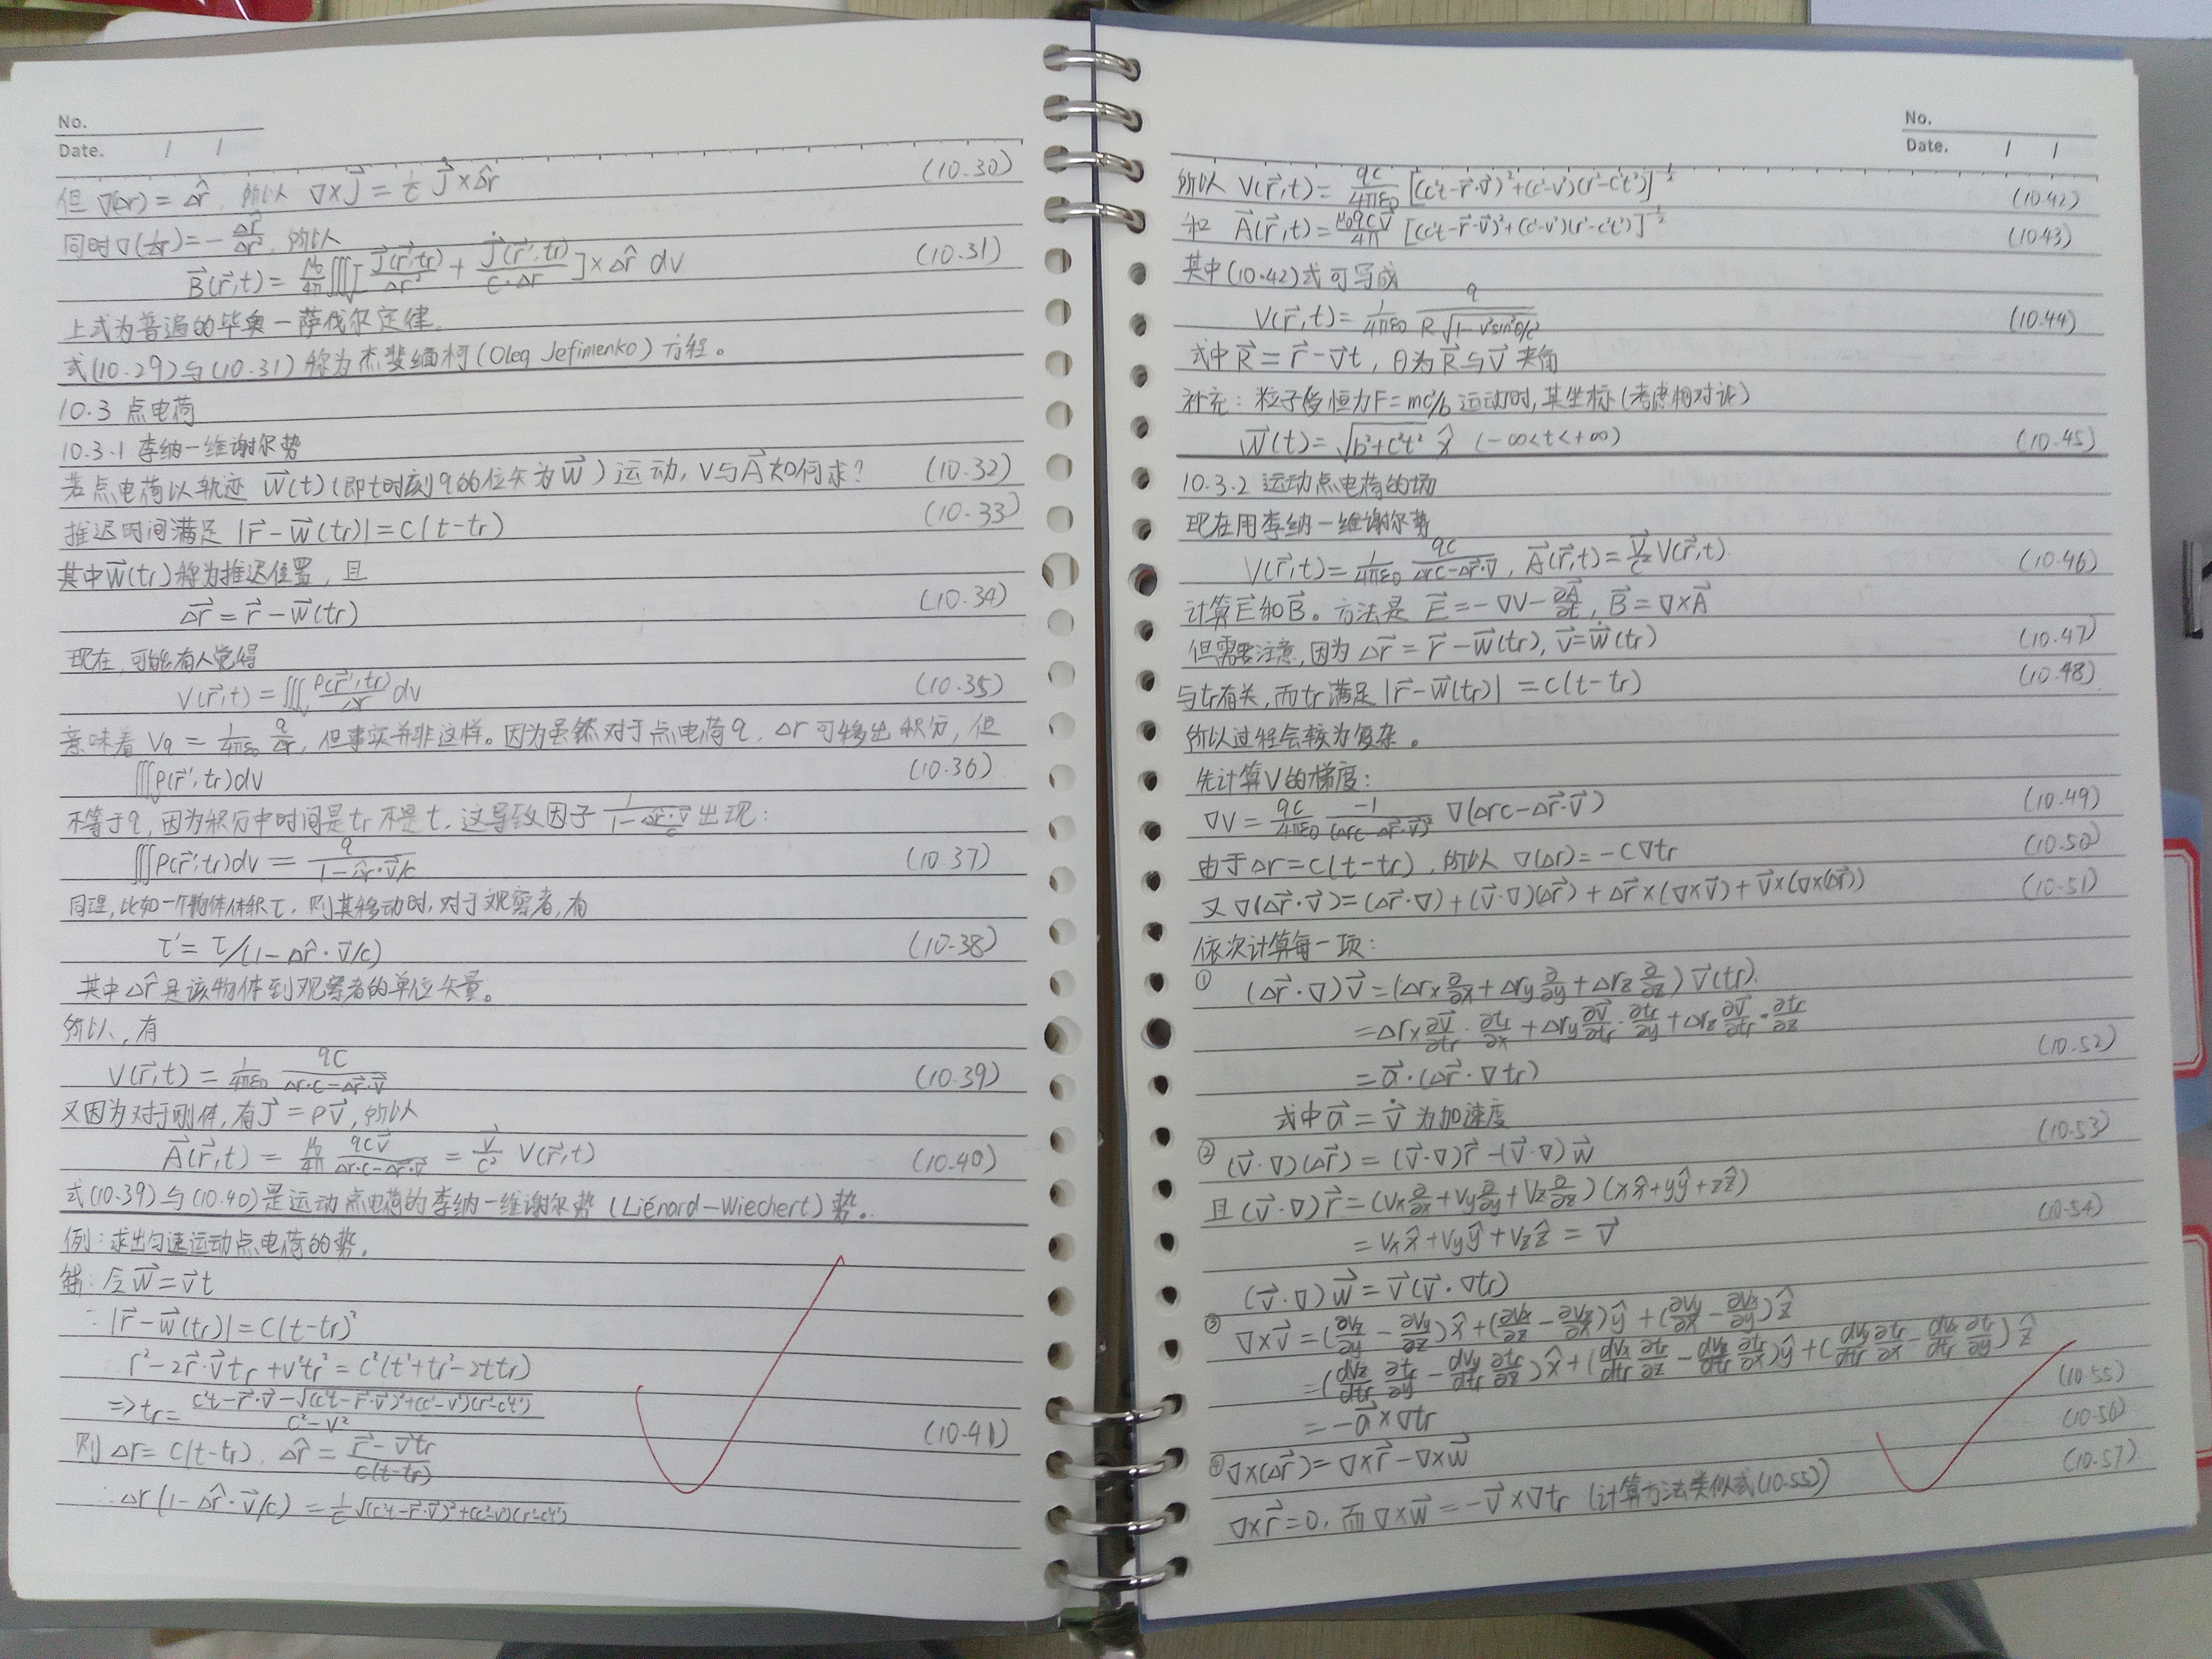 No.
Date. / /
但 ∇(Δr) = Δr̂, 所以 ∇×J⃗ = 1/c J⃗̇×Δr̂ (10.30)
同时∇(1/Δr) = -Δr̂/Δr², 所以
B⃗(r⃗,t) = μ₀/4π ∭[J⃗(r⃗',tr)/Δr² + J⃗̇(r⃗',tr)/(c·Δr)]×Δr̂ dv (10.31)
上式为普遍的毕奥一萨伐尔定律.
式(10.29)与(10.31)称为杰斐缅柯(Oleg Jefimenko)方程。
10.3 点电荷
10.3.1 李纳一维谢尔势
若点电荷以轨迹 w⃗(t)(即t时刻q的位矢为w⃗)运动, V与A⃗如何求? (10.32)
推迟时间满足 |r⃗-w⃗(tr)| = c(t-tr) (10.33)
其中w⃗(tr)称为推迟位置, 且
Δr⃗ = r⃗-w⃗(tr) (10.34)
现在, 可能有人觉得
V(r⃗,t) = ∭ρ(r⃗',tr)/Δr dv (10.35)
意味着 Vq = 1/4πε₀ q/Δr, 但事实并非这样。因为虽然对于点电荷q, Δr可移出积分, 但
∭ρ(r⃗',tr)dv (10.36)
不等于q, 因为积分中时间是tr不是t. 这导致因子 1/(1-Δr̂·v⃗/c) 出现:
∭ρ(r⃗',tr)dv = q/(1-Δr̂·v⃗/c) (10.37)
同理, 比如一个物体体积τ, 则其移动时, 对于观察者, 有
τ' = τ/(1-Δr̂·v⃗/c) (10.38)
其中Δr̂是该物体到观察者的单位矢量。
所以, 有
V(r⃗,t) = 1/4πε₀ qc/(Δr·c-Δr⃗·v⃗) (10.39)
又因为对于刚体, 有J⃗ = ρv⃗, 所以
A⃗(r⃗,t) = μ₀/4π qcv⃗/(Δr·c-Δr⃗·v⃗) = v⃗/c² V(r⃗,t) (10.40)
式(10.39)与(10.40)是运动点电荷的李纳一维谢尔势(Liénard-Wiechert)势。
例: 求出匀速运动点电荷的势.
解: 令w⃗ = v⃗t
∵ |r⃗-w⃗(tr)| = c(t-tr)²
r²-2r⃗·v⃗tr+v²tr² = c²(t²+tr²-2ttr)
⇒ tr = (c²t-r⃗·v⃗-√((c²t-r⃗·v⃗)²+(c²-v²)(r²-c²t²)))/(c²-v²) (10.41)
则 Δr = c(t-tr), Δr̂ = (r⃗-v⃗tr)/(c(t-tr))
∴ Δr(1-Δr̂·v⃗/c) = 1/c √((c²t-r⃗·v⃗)²+(c²-v²)(r²-c²t²))
No.
Date. / /
所以 V(r⃗,t) = qc/4πε₀ [(c²t-r⃗·v⃗)²+(c²-v²)(r²-c²t²)]^(-1/2) (10.42)
和 A⃗(r⃗,t) = μ₀qcv⃗/4π [(c²t-r⃗·v⃗)²+(c²-v²)(r²-c²t²)]^(-1/2) (10.43)
其中(10.42)式可写成
V(r⃗,t) = 1/4πε₀ q/(R√(1-v²sin²θ/c²)) (10.44)
式中R⃗ = r⃗-v⃗t, θ为R⃗与v⃗夹角
补充: 粒子受恒力F=mc²/b运动时, 其坐标(考虑相对论)
w⃗(t) = √(b²+c²t²) x̂ (-∞<t<+∞) (10.45)
10.3.2 运动点电荷的场
现在用李纳一维谢尔势
V(r⃗,t) = 1/4πε₀ qc/(Δrc-Δr⃗·v⃗), A⃗(r⃗,t) = v⃗/c² V(r⃗,t). (10.46)
计算E⃗和B⃗。方法是 E⃗ = -∇V-∂A⃗/∂t, B⃗ = ∇×A⃗
但需要注意, 因为 Δr⃗ = r⃗-w⃗(tr), v⃗ = w⃗̇(tr) (10.47)
与tr有关, 而tr满足 |r⃗-w⃗(tr)| = c(t-tr) (10.48)
所以过程会较为复杂。
先计算V的梯度:
∇V = qc/4πε₀ -1/(Δrc-Δr⃗·v⃗)² ∇(Δrc-Δr⃗·v⃗) (10.49)
由于Δr = c(t-tr), 所以 ∇(Δr) = -c∇tr (10.50)
又 ∇(Δr⃗·v⃗) = (Δr⃗·∇)+(v⃗·∇)(Δr⃗)+Δr⃗×(∇×v⃗)+v⃗×(∇×(Δr⃗)) (10.51)
依次计算每一项:
① (Δr⃗·∇)v⃗ = (Δrx ∂/∂x+Δry ∂/∂y+Δrz ∂/∂z)v⃗(tr).
= Δrx ∂v⃗/∂tr·∂tr/∂x+Δry ∂v⃗/∂tr·∂tr/∂y+Δrz ∂v⃗/∂tr·∂tr/∂z
= a⃗·(Δr⃗·∇tr) (10.52)
式中a⃗ = v⃗̇ 为加速度
② (v⃗·∇)(Δr⃗) = (v⃗·∇)r⃗-(v⃗·∇)w⃗ (10.53)
且(v⃗·∇)r⃗ = (vx ∂/∂x+vy ∂/∂y+vz ∂/∂z)(xx̂+yŷ+zẑ)
= vxx̂+vyŷ+vzẑ = v⃗ (10.54)
(v⃗·∇)w⃗ = v⃗(v⃗·∇tr)
③ ∇×v⃗ = (∂vz/∂y-∂vy/∂z)x̂+(∂vx/∂z-∂vz/∂x)ŷ+(∂vy/∂x-∂vx/∂y)ẑ
= (dvz/dtr ∂tr/∂y-dvy/dtr ∂tr/∂z)x̂+(dvx/dtr ∂tr/∂z-dvz/dtr ∂tr/∂x)ŷ+(dvy/dtr ∂tr/∂x-dvx/dtr ∂tr/∂y)ẑ
= -a⃗×∇tr (10.55)
④ ∇×(Δr⃗) = ∇×r⃗-∇×w⃗ (10.56)
∇×r⃗ = 0, 而∇×w⃗ = -v⃗×∇tr (计算方法类似式(10.55)) (10.57)